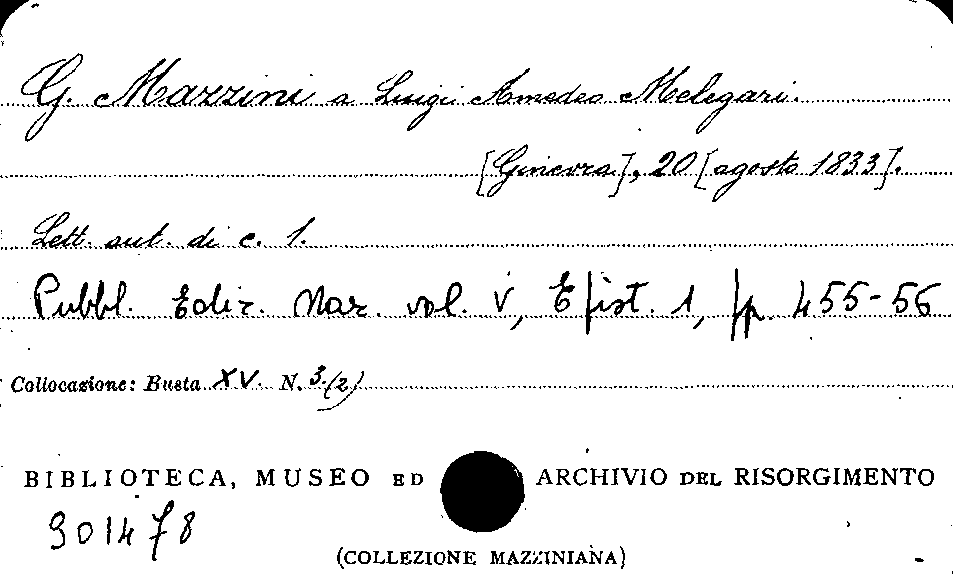 G. Mazzini a Luigi Amedeo Melegari.
[Ginevra], 20 [agosto 1833].
Lett. aut. di c. 1.
Pubbl. Ediz. Naz. vol. V, Epist. 1, pp. 455-56
Collocazione: Busta XV. N. 3.(2)
BIBLIOTECA, MUSEO ED ARCHIVIO DEL RISORGIMENTO
901478
(COLLEZIONE MAZZINIANA)